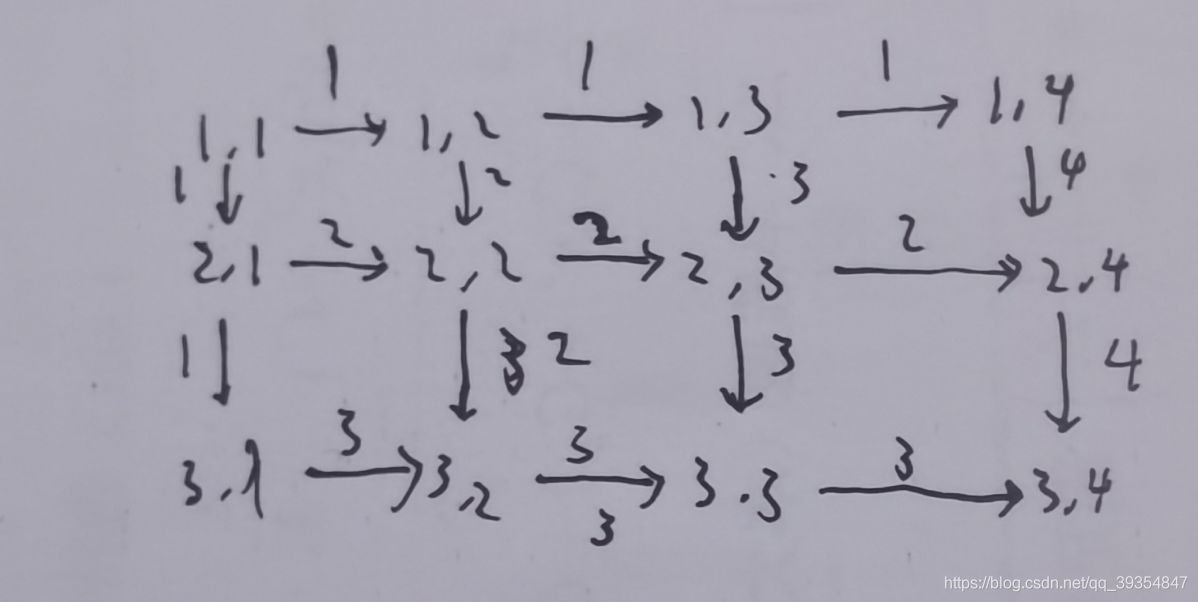 1 1 1
1,1 → 1,2 → 1,3 → 1,4
1 ↓ ↓ 2 ↓ ·3 ↓ 4
2 2 2
2,1 → 2,2 → 2,3 → 2,4
1 ↓ ↓ 2 ↓ 3 ↓ 4
3 3 3
3,1 → 3,2 → 3.3 → 3,4
3
https://blog.csdn.net/qq_39354847